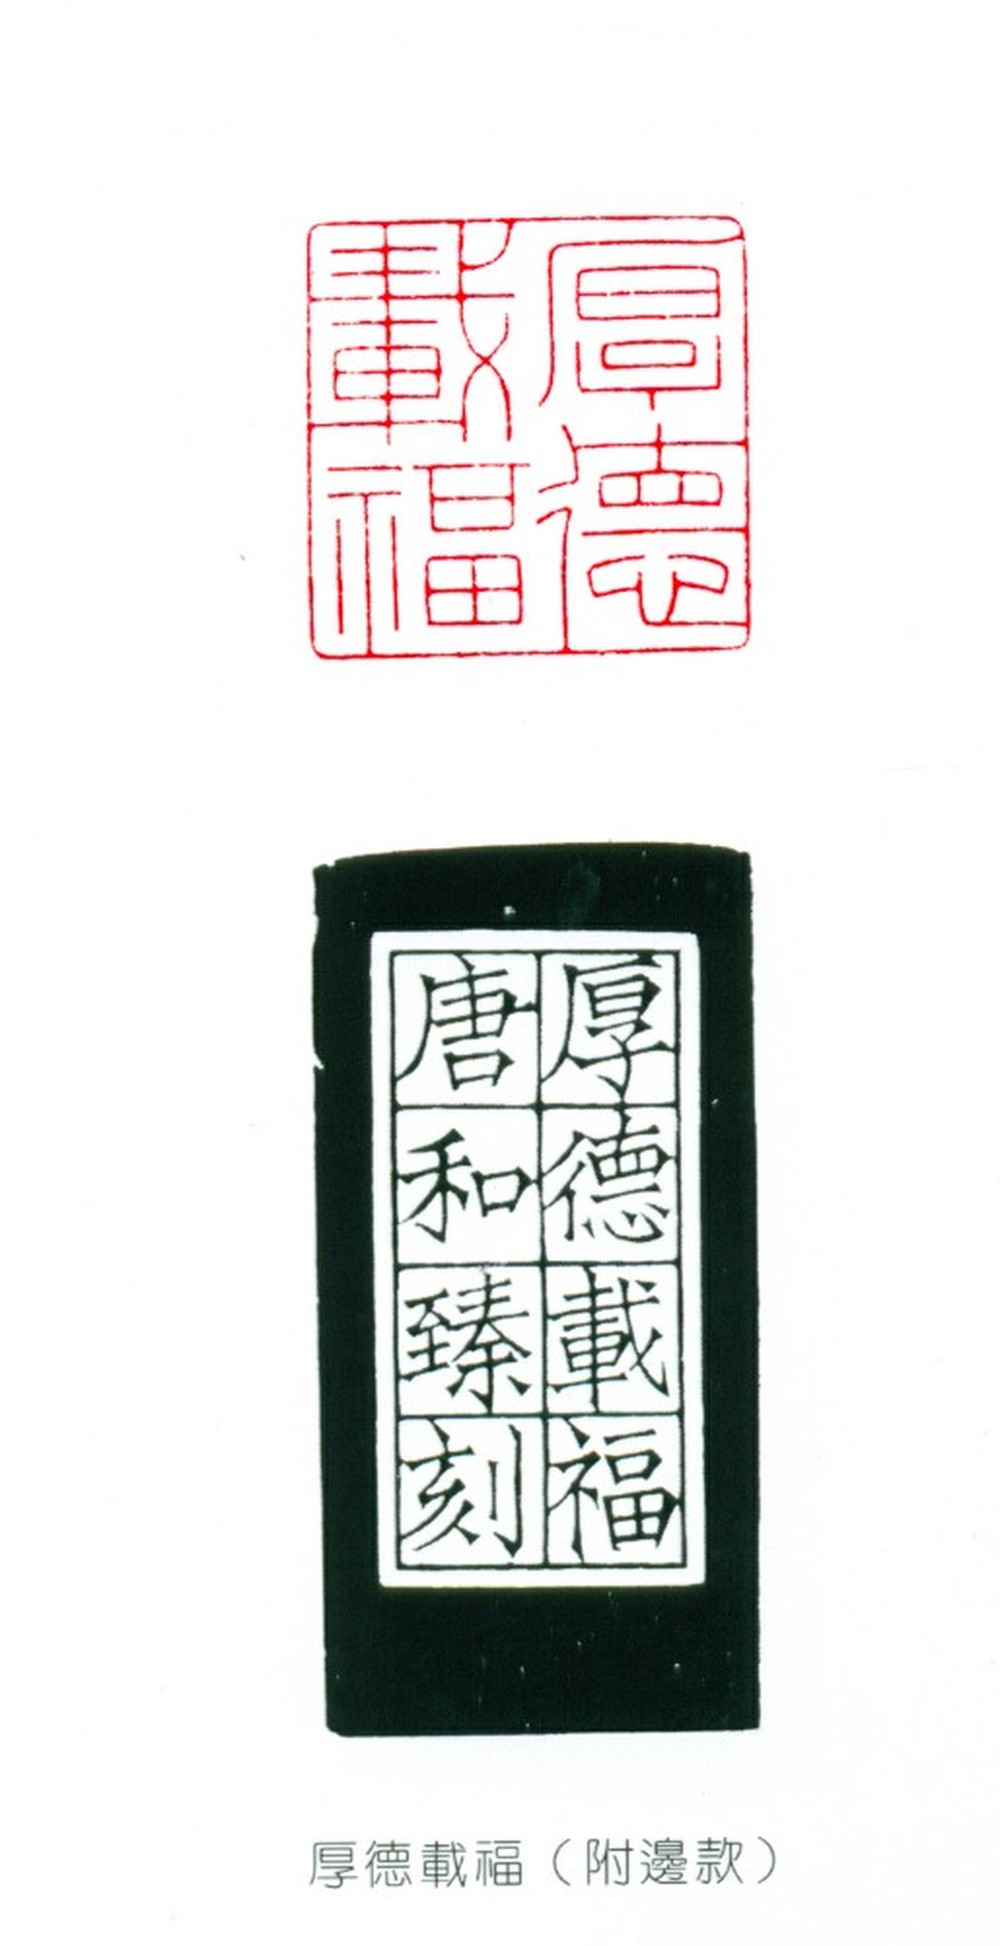 厚德
載福
厚德載福
唐和臻刻
厚德載福（附邊款）